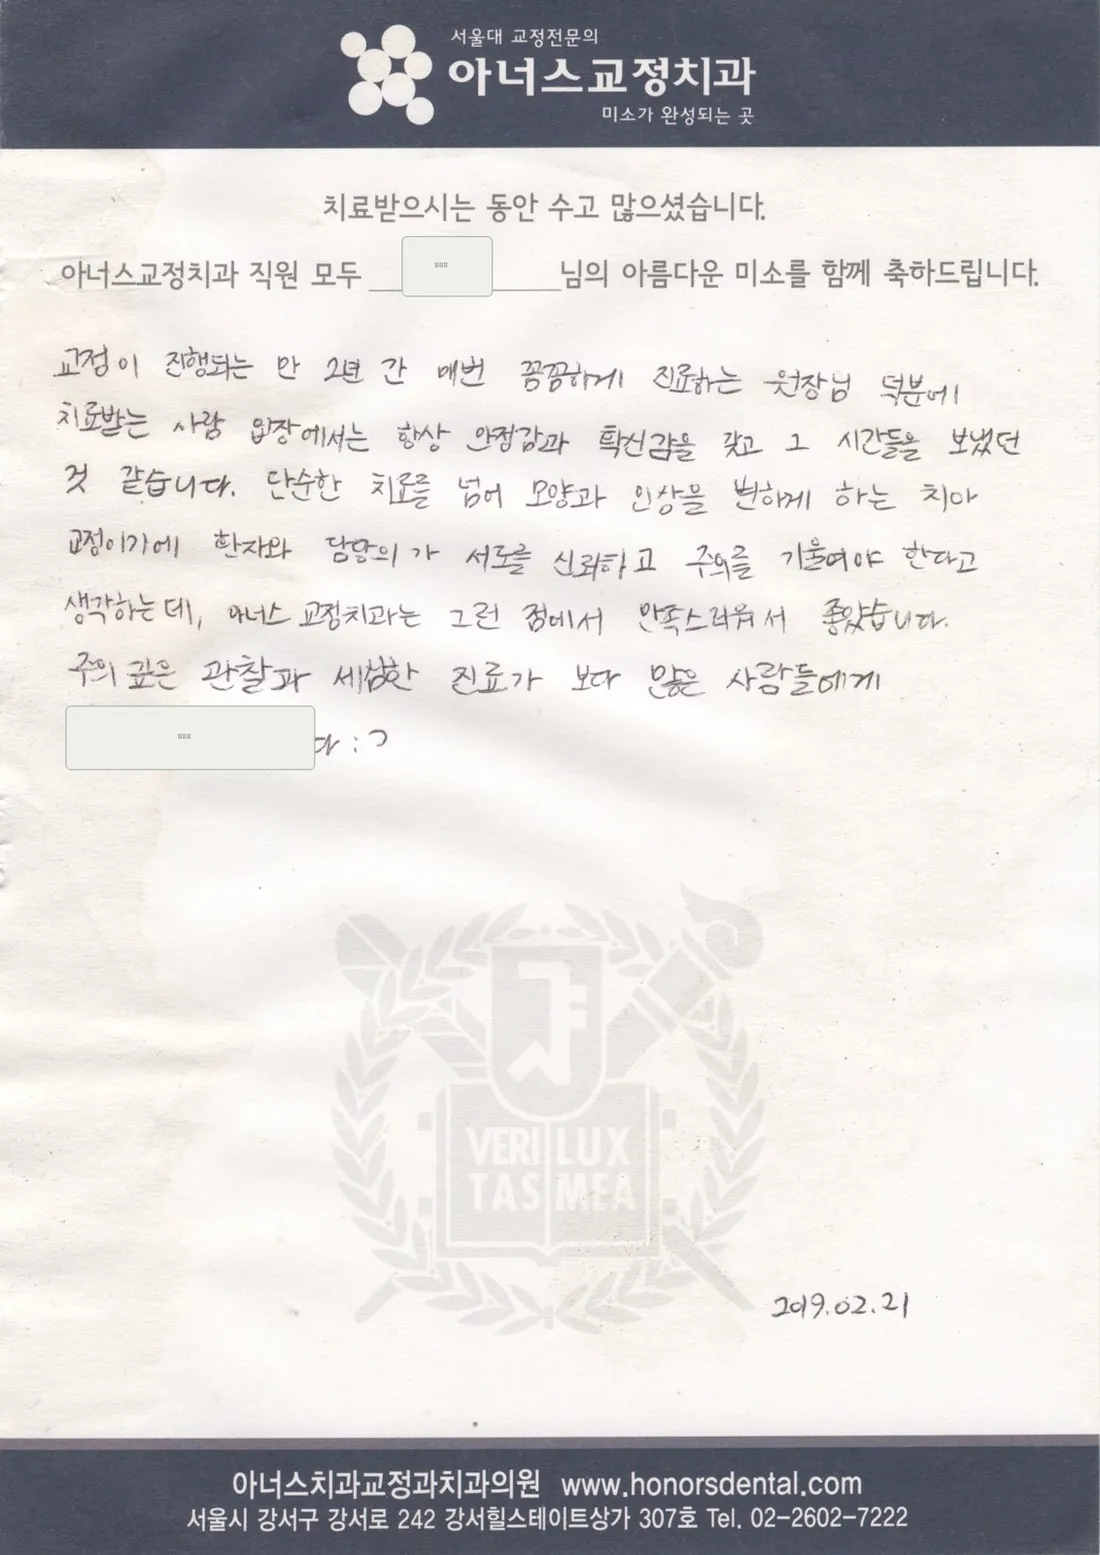 서울대 교정전문의
아너스교정치과
미소가 완성되는 곳
치료받으시는 동안 수고 많으셨습니다.
아너스교정치과 직원 모두 님의 아름다운 미소를 함께 축하드립니다.
교정이 진행되는 만 2년 간 매번 꼼꼼하게 진료하는 원장님 덕분에
치료받는 사람 입장에서는 항상 안정감과 확신감을 갖고 그 시간들을 보냈던
것 같습니다. 단순한 치료를 넘어 모양과 인상을 변하게 하는 치아
교정이기에 환자와 담당의가 서로를 신뢰하고 주의를 기울여야 한다고
생각하는데, 아너스 교정치과는 그런 점에서 만족스러워서 좋았습니다.
주의 깊은 관찰과 세심한 진료가 보다 많은 사람들에게
다 :)
VERI LUX
TAS MEA
2019.02.21
아너스치과교정과치과의원 www.honorsdental.com
서울시 강서구 강서로 242 강서힐스테이트상가 307호 Tel. 02-2602-7222